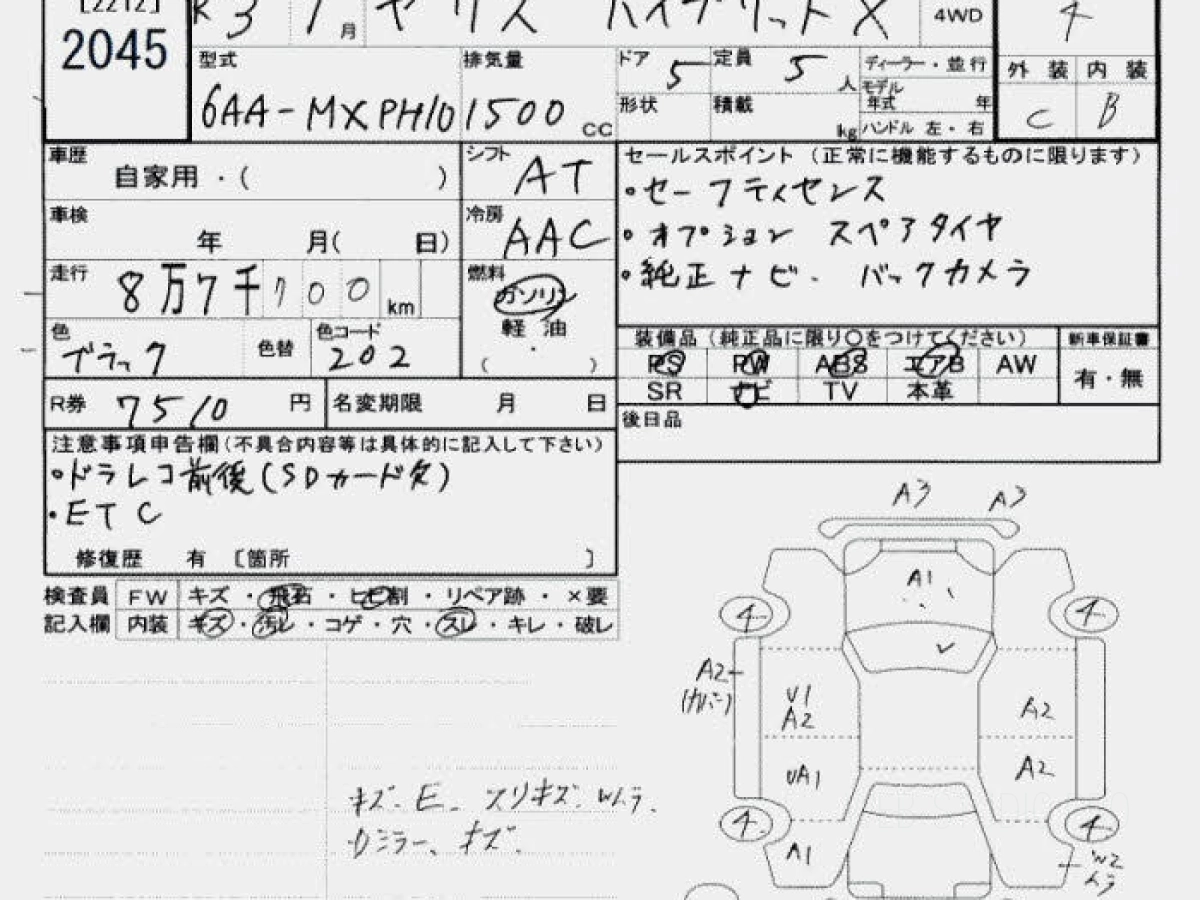 [2212]
2045
R3 1月 ヤリス ハイブリッド X 4WD 4
型式 6AA-MXPH10
排気量 1500 CC
ドア 5 定員 5 人
形状 積載 kg
ディーラー・並行
モデル年式 年
ハンドル 左・右
外装 内装
C B
車歴 自家用・( )
シフト AT
車検 年 月( 日)
冷房 AAC
走行 8万7千700km
燃料 ガソリン
軽油
( ・ )
色 ブラック 色替 色コード 202
セールスポイント(正常に機能するものに限ります)
・セーフティセンス
・オプション スペアタイヤ
・純正ナビ. バックカメラ
装備品(純正品に限り○をつけてください) 新車保証書
PS PW ABS エアB AW 有・無
SR ナビ TV 本革
R券 7510 円 名変期限 月 日
後日品
注意事項申告欄(不具合内容等は具体的に記入して下さい)
・ドラレコ前後(SDカード欠)
・ETC
修復歴 有 〔箇所 〕
検査員 FW キズ・飛石・ヒビ割・リペア跡・×要
記入欄 内装 キズ・汚レ・コゲ・穴・スレ・キレ・破レ
A3 A3
A1
4 4
A2
(カバー)
U1
A2 A2
UA1 A2
4 4
A1 W2
ムラ
キズ. E. スリキズ. Wムラ.
ミラー、キズ.